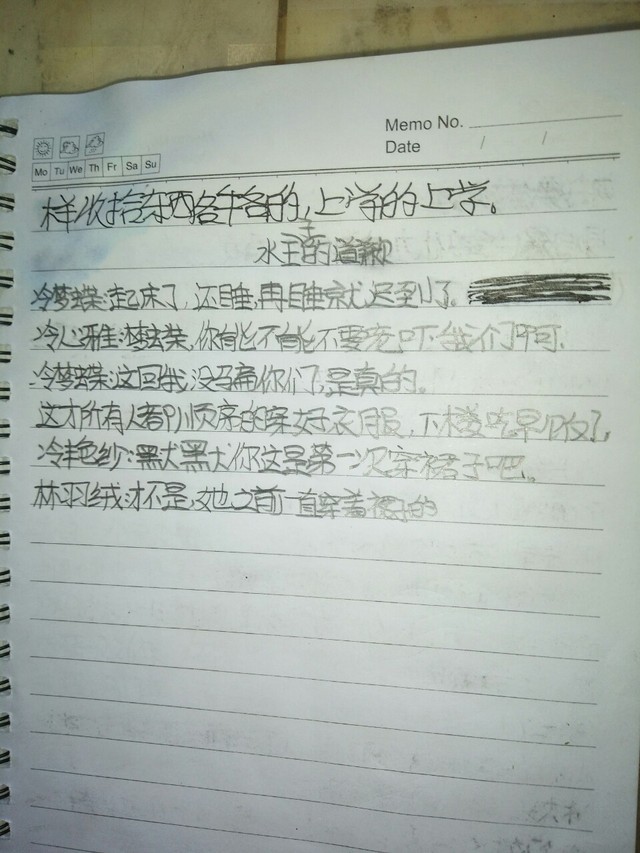 Memo No.
Date / /
Mo Tu We Th Fr Sa Su
样收拾东西各年各的,上学的上学。
水王的道歉
冷梦蝶:起床了,还睡,再睡就迟到了。
冷心雅:梦蝶,你能不能不要老吓我们啊
冷梦蝶:这回我没骗你们,是真的。
这才所有人都顺序的穿好衣服,下楼吃早饭了,
冷艳纱:默默你这是第一次穿裙子吧。
林羽绒:才不是,她之前一直穿着裙子的